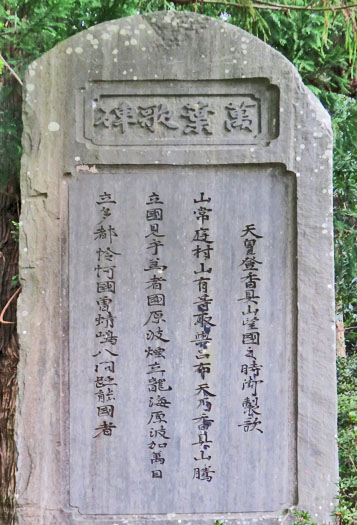 萬葉歌碑
天皇登香具山望國之時御製歌
山常庭村山有等取與呂布天乃香具山騰
立國見乎為者國原波煙立龍海原波加萬目
立多都怜𪫧國曽蜻嶋八間跡能國者